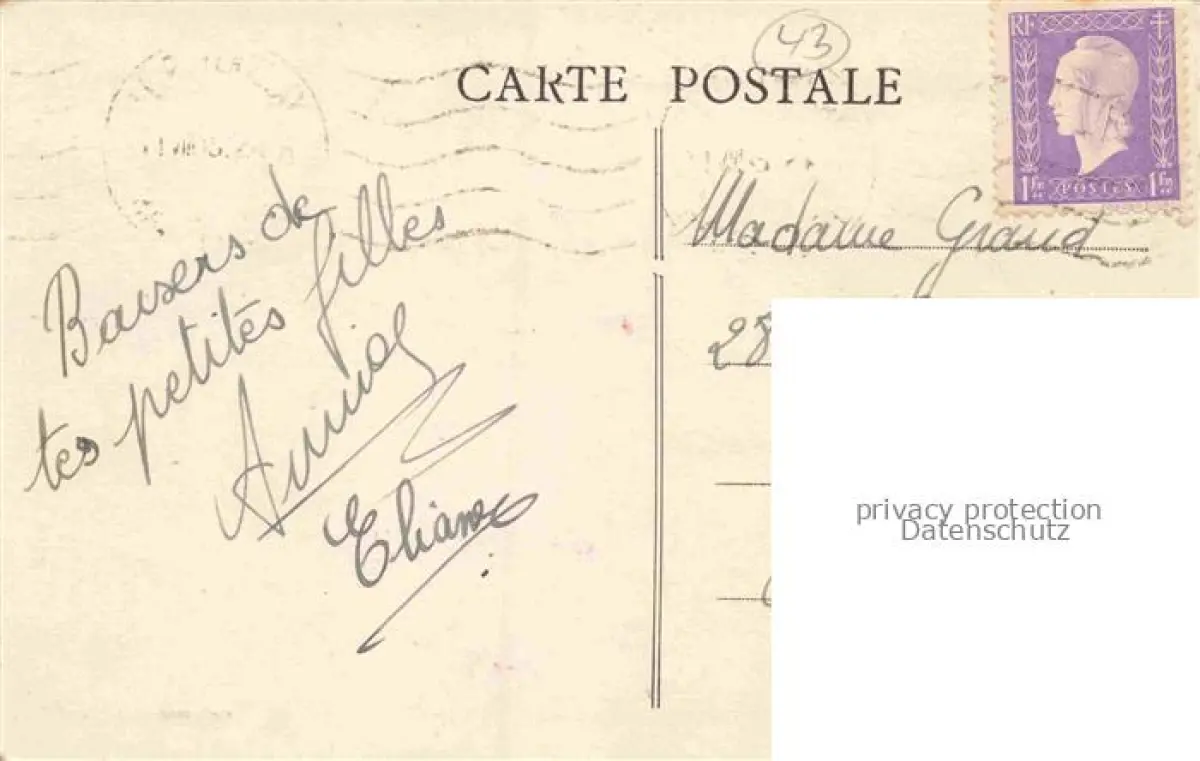 43
CARTE POSTALE
RF
1 Fr POSTES 1 Fr
Baisers de
tes petites filles
Eliane
Madame Grand
28
privacy protection
Datenschutz